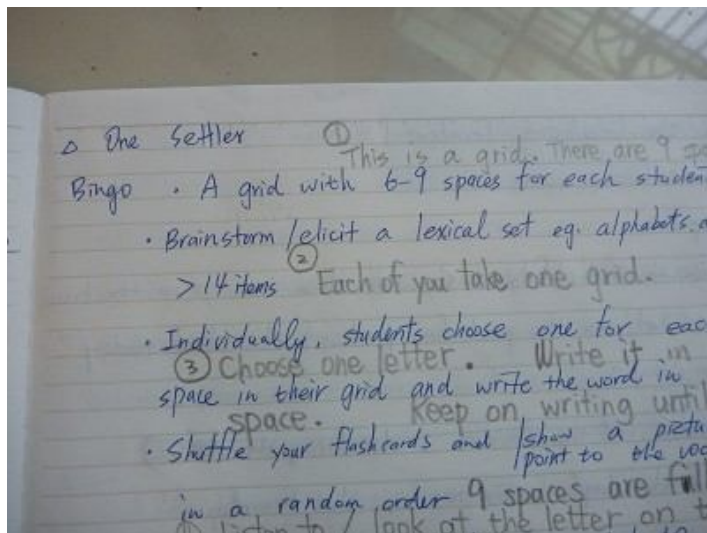 △ One Settler ①
This is a grid. There are 9
Bingo • A grid with 6-9 spaces for each
• Brainstorm / elicit a lexical set eg. alphabets.
②
> 14 items Each of you take one grid.
• Individually, students choose one for
③ Choose one letter. Write it in
space in their grid and write the word in
space. Keep on writing
• Shuffle your flashcards and / show a
/ point to the
in a random order 9 spaces are
listen to / look at the letter on